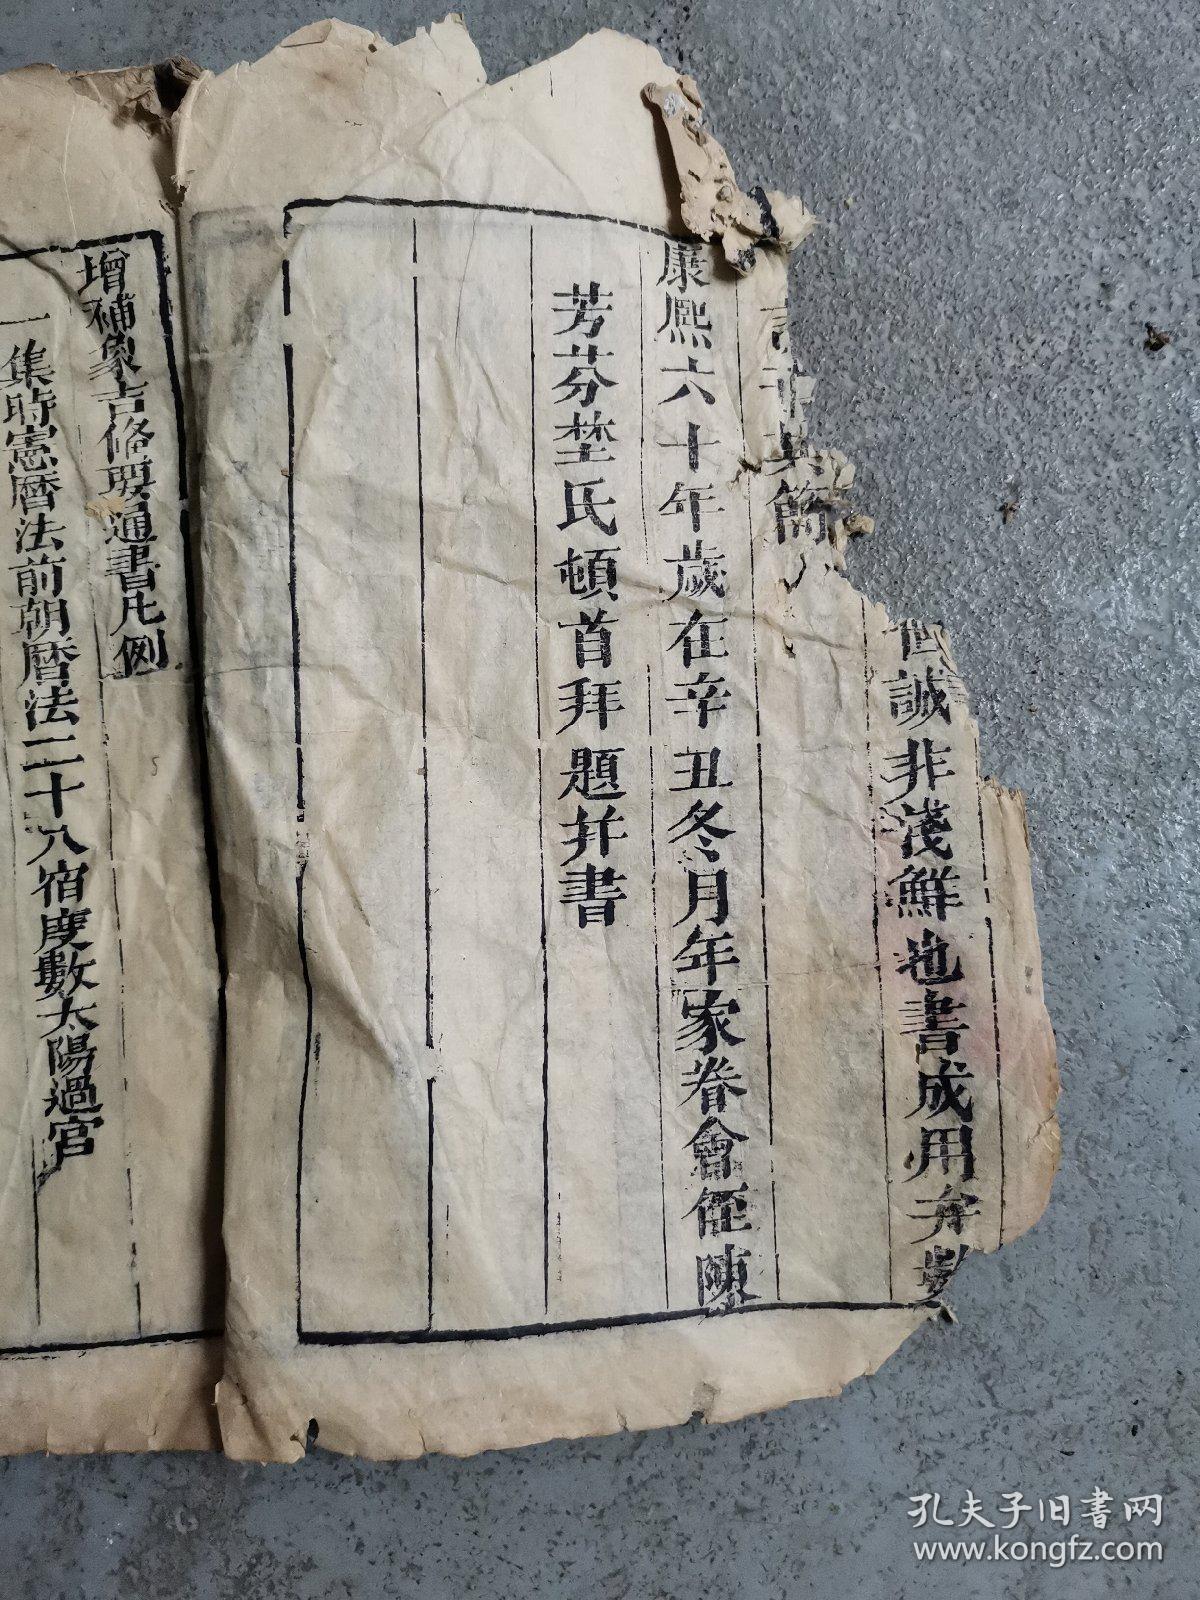 誠非淺鮮也書成用弁數
其簡
康熙六十年歲在辛丑冬月年家眷會侄陳
芳芬埜氏頓首拜題并書
增補象吉俻要通書凡例
一集時憲曆法前朝曆法二十八宿度數太陽過宮
孔夫子旧书网
www.kongfz.com